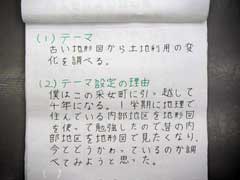 (1) テーマ
古い地形図から土地利用の変
化を調べる。
(2) テーマ設定の理由
僕はこの采女町に引っ越して
十年になる。1学期に地理で
住んでいる内部地区を地形図
を使って勉強したので昔の内
部地区を地形図で見たくなり、
今とどうかわっているのか調
べてみようと思った。